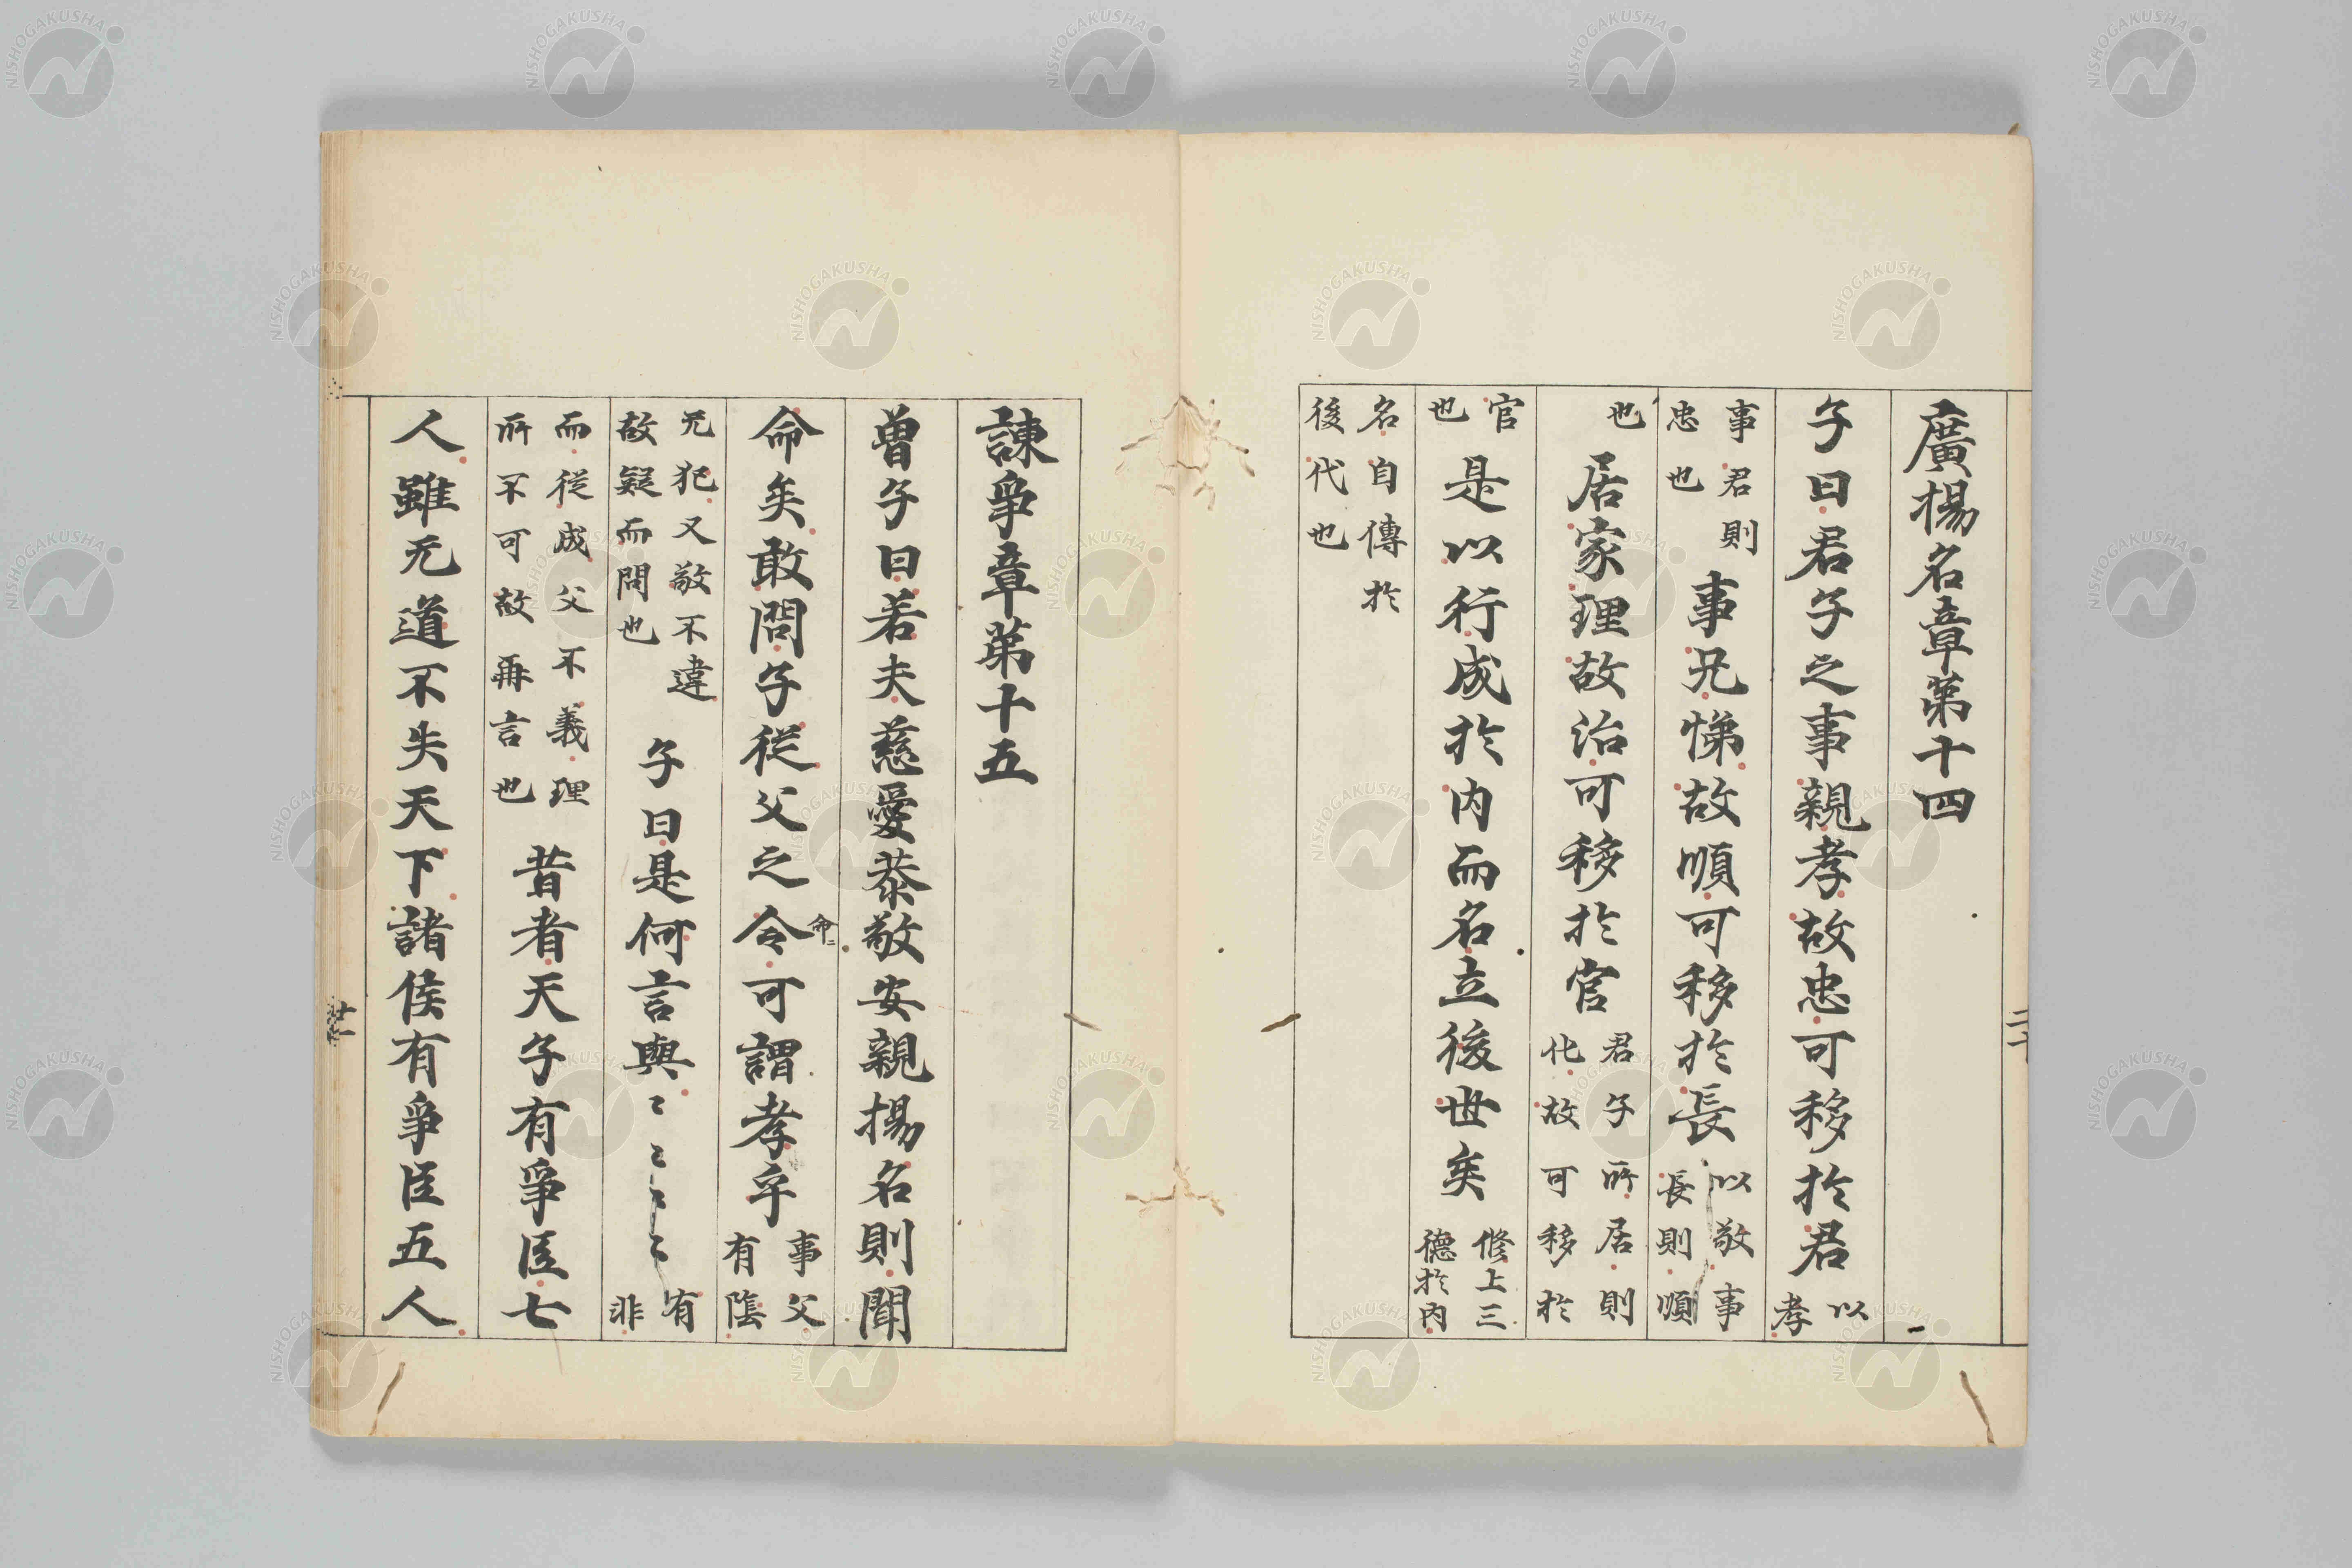 廣揚名章第十四
子曰君子之事親孝故忠可移於君以孝
事君則忠也事兄悌故順可移於長以敬事長則順
也居家理故治可移於官君子所居則化故可移於
官也是以行成於内而名立後世矣修上三德於内
名自傳於後代也
諌爭章第十五
曽子曰若夫慈愛恭敬安親揚名則聞
命矣敢問子從父之令可謂孝乎事父有隱
命二
无犯又敬不違故疑而問也子曰是何言與〻〻〻〻有非
而從成父不義理所不可故再言也昔者天子有爭臣七
人雖无道不失天下諸侯有爭臣五人
NISHOGAKUSHA